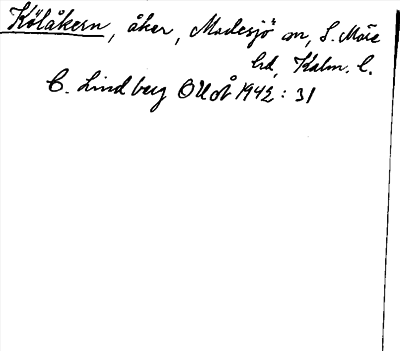 Kölåkern, åker, Madesjö sn, S. Möre
hd, Kalm. l.
C. Lindberg OUÅ 1942: 31